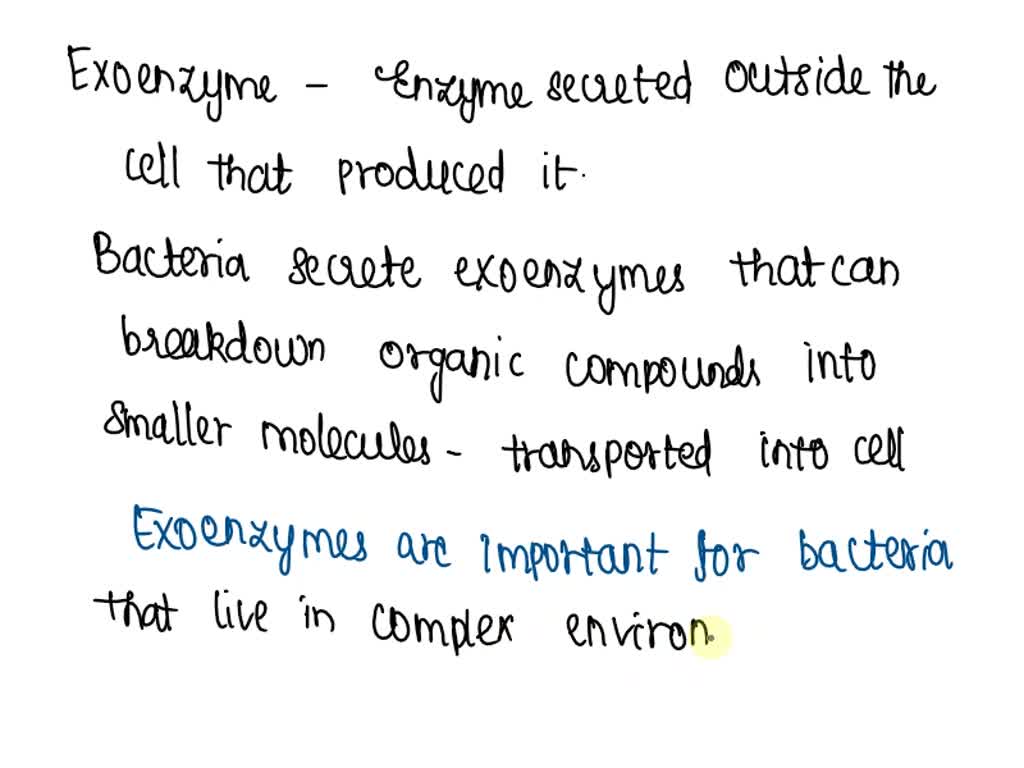 Exoenzyme - Enzyme secreted outside the
cell that produced it.
Bacteria secrete exoenzymes that can
breakdown organic compounds into
smaller molecules - transported into cell
Exoenzymes are important for bacteria
that live in complex environ